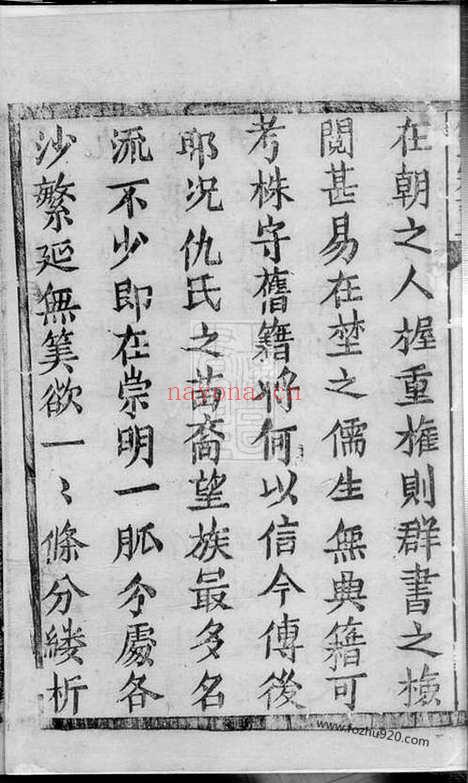 在朝之人握重權則群書之檢
閱甚易在埜之儒生無典籍可
考株守舊籍將何以信今傳後
耶况仇氏之苗裔望族最多名
流不少即在崇明一脈分處各
沙繁延無筭欲一〻條分縷析
nayona.cn
www.fozhu920.com